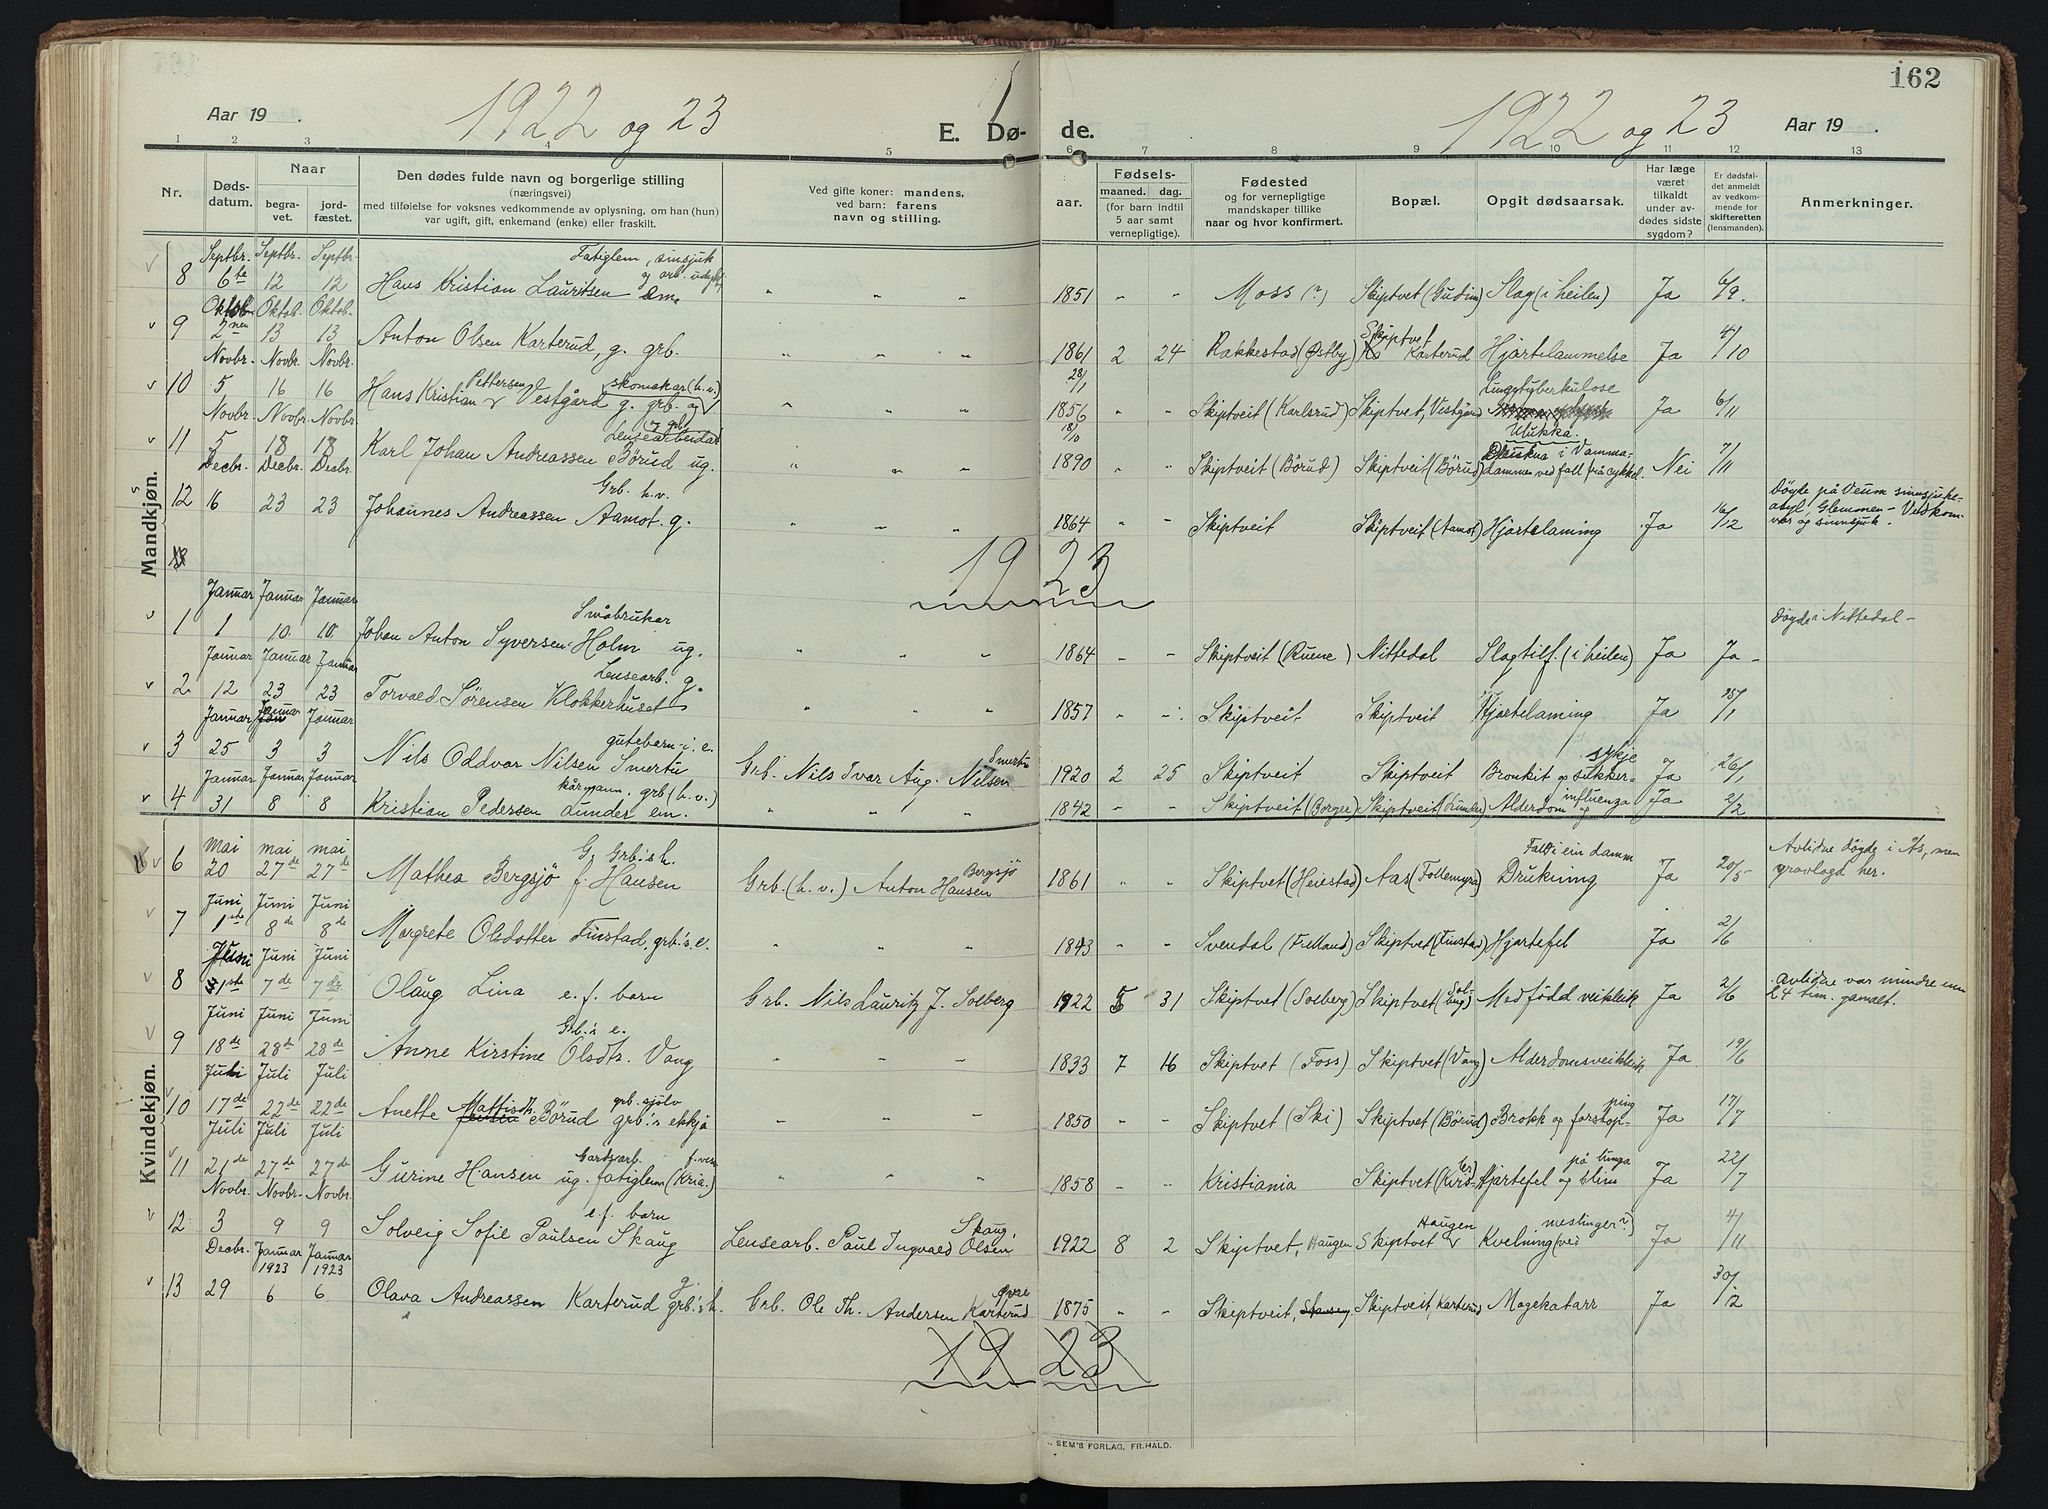 162
Aar 19 . 1922 og 23 E. Dø- de. 1922 og 23 Aar 19 .
1 2 3 4 5 6 7 8 9 10 11 12 13
Nr. Døds-datum. Naar begra-vet. jord-fæstet. Den dødes fulde navn og borgerlige stilling (næringsvei) med tilføielse for voksnes vedkommende av oplysning, om han (hun) var ugift, gift, enkemand (enke) eller fraskilt. Ved gifte koner: mandens, ved barn: farens navn og stilling. aar. Fødsels- maaned. dag. (for barn indtil 5 aar samt vernepligtige). Fødested og for vernepligtige mandskaper tillike naar og hvor konfirmert. Bopæl. Opgit dødsaarsak. Har læge været tilkaldt under av-dødes sidste sygdom? Er dødsfal-det anmeldt av vedkom-mende for skifteretten (lensmanden). Anmerkninger.
Mandkjøn.
Septbr. Septbr. Septbr. Fatiglem, sinsjuk
8 6te 12 12 Hans Kristian Lauritsen 1851 " " Moss (?) Skiptvet (Gudim) Slag (i heilen) Ja 6/9.
Oktob. Oktob. Oktob.
9 2nen 13 13 Anton Olsen Karterud, g. grb. " " " 1861 2 24 Rakkestad (Østby) Skiptvet Karterud Hjartelammelse Ja 4/10
Novbr. Novbr. Novbr.
10 5 16 16 Hans Kristian Pettersen Vestgård g. grb. og skomakar (h.v.) " " " 28/1 1856 " " Skiptveit (Karlsrud) Skiptvet, Vestgård Lungetyberkulose Ja 6/11
Novbr. Novbr. Novbr.
11 5 18 18 Karl Johan Andreassen Børud ug. Lensearbeidar " " " 18/10 1890 " " Skiptveit (Børud) Skiptveit (Børud) Ulukka. Drukna i Vamma-dammen ved fall frå cykkel. Nei 7/11
Decbr. Decbr. Decbr.
12 16 23 23 Johannes Andreassen Aamot. g. Grb. h.v. " " " 1864 " " Skiptveit Skiptveit (Aamot) Hjartelaming Ja 16/12 Døyde på Veum sinnsjuke-asyl, Glemmen - Vedkom-var og sinnsjuk.
1923
Januar Januar Januar
1 1 10. 10. Johan Anton Syversen Holm ug. Småbrukar " " " 1864 - - Skiptveit (Ruene) Nittedal Slagtilf. (i heilen) Ja Ja - Døyde i Nittedal -
Januar Januar Januar
2 12 23 23 Torvald Sørensen Klokkerhuset Lensearb. g. " " " 1857 " " Skiptveit Skiptveit Hjartelaming Ja 25/1
Januar Januar Januar
3 25 3 3 Nils Oddvar Nilsen Smertu gutebarn i. e. Grb. Nils Ivar Aug. Nilsen Smertu 1920 2 25 Skiptveit Skiptveit Bronkit og sukker-sykje Ja 26/1
Januar Januar Januar
4 31 8 8 Kristian Pedersen Lunder em. kårmann, grb (h.v.) " " " 1842 - - Skiptveit (Borger) Skiptveit (Lunder) Alderdom og influenza Ja 2/2
Kvindekjøn.
mai mai mai
6 20 27de 27de Mathea Bergsjö f. Hansen G. Grb.'s h. Grb. (h.v.) Anton Hansen Bergsjö 1861 " " Skiptvet (Heiestad) Aas (Follemyra) Fald i ein damm Drukning Ja 20/5 Avlidne döyde i Ås, men gravlagd her.
Juni Juni Juni
7 1ste 8de 8de Margrete Olsdotter Finstad, grb.'s e. " " " 1843 - - Svendal (Frelland) Skiptvet (Finstad) Hjartefel Ja 2/6
Juni Juni Juni
8 1ste 7de 7de Olaug Lina e. f. barn Grb. Nils Lauritz J. Solberg 1922 5 31 Skiptvet (Solberg) Skiptvet (Solberg) Medfödd veikleik Ja 2/6 Avlidne var mindre enn 24 tim. gamalt.
Juni Juni Juni
9 18de 28de 28de Anne Kirstine Olsdtr. Vang Grb.'s e. " " " 1833 7 16 Skiptvet (Foss) Skiptvet (Vang) Alderdomsveikleik Ja 19/6
Juli Juli Juli
10 17de 22de 22de Anette Mattisdtr. Börud grb.'s ekkja grb. sjölv " " " 1850 " " Skiptvet (Ski) Skiptvet (Börud) Brokk og forstop-ping Ja 17/7
Juli Juli Juli
11 21de 27de 27de Gurine Hansen ug. fatiglem (Kria.) Gardsarb. " " " 1858 - - Kristiania Skiptvet Hjartefel og slim på lunga Ja 22/7
Novbr. Novbr. Novbr.
12 3 9 9 Solveig Sofie Paulsen Skaug e. f. barn Lensearb. Paul Ingvald Olsen Skaug, 1922 8 2 Skiptvet, Haugen Skiptvet Haugen Kvelning (ved meslinger?) Ja 4/11
Decbr. Januar 1923 Januar 1923
13 29 6 6 Olava Andreassen Karterud g. grb.'s h. Grb. Ole Th. Andersen Karterud 1875 " " Skiptveit, Skiptveit, Karterud Magekatarr Ja 30/12
1923
SEM'S FORLAG, FR.HALD.